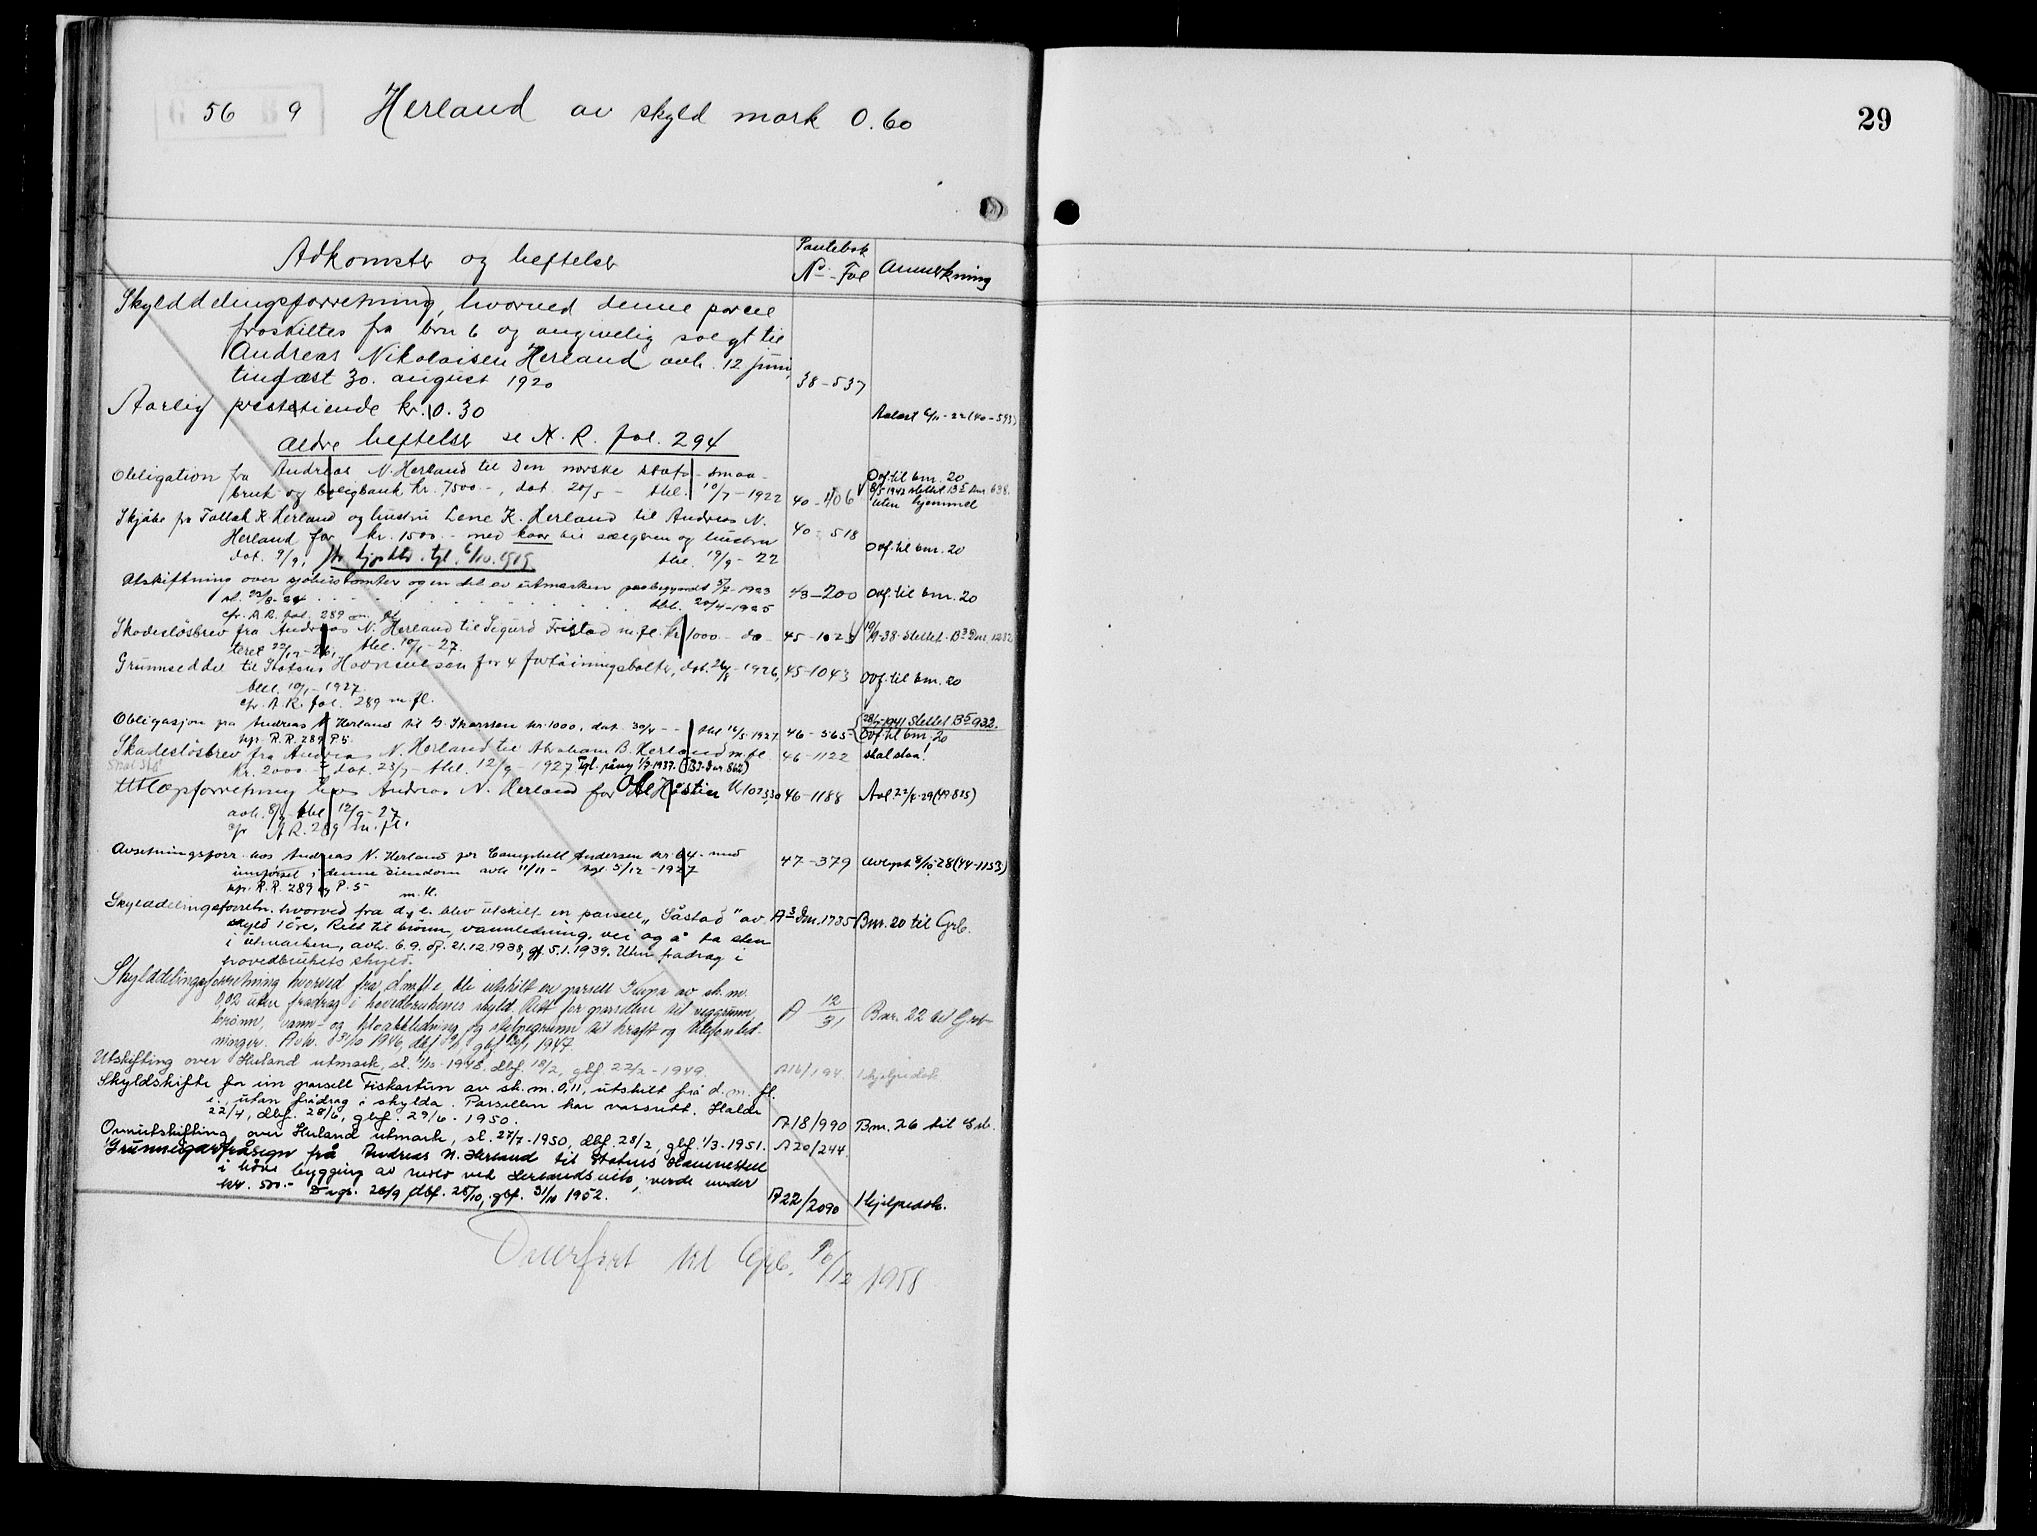 G 56 B 9 Herland av skyld mark 0.60
29
Adkomster og heftelser
Pantebok
No - Fol
Anmerkning
Skylddelingsforretning, hvorved denne parcel
fraskiltes fra brn 6 og angivelig solgt til
Andreas Nikolaisen Herland avh. 12 juni,
tinglæst 30. august 1920
38-537
Aarlig prestetiende kr. 0.30
Avløst 6/11-22 (40-593)
Ældre heftelser se A. R. fol. 294
Obligation fra Andreas N. Herland til Den norske stats smaa-
bruk og boligbank kr. 7500-, dat. 20/5 - thl. 10/7-1922
40-406
Ovf. til bnr. 20
8/5 1942 slettet B5 Dnr. 638.
uten hjemmel
Skjøte fra Tallak K. Herland og hustru Lene K. Herland til Andreas N.
Herland for kr. 1500.- med kaar til sælgeren og hustru
dat. 9/9, thl. 19/9-22
40-518
Ovf. til bnr. 20
Utskiftning over sjøhustomter og en del av utmarken paabegyndt 3/7-1923
sl. 22/8-24 thl. 20/4-1925
cfr. A.R. fol. 289
43-200
Ovf. til bnr. 20
Skadesløsbrev fra Andreas N. Herland til Sigurd Fristad m.fl. kr 1000- da-
teret 22/12-26, thl. 10/1-27.
45-1025
19/9-38 slettet B3 Dnr. 1232
Grunnseddel til Statens Havnevesen for 4 fortøiningsbolter, dat. 26/8-1926,
thl. 10/1-1927
cfr. A.R. fol. 289 m.fl.
45-1043
Ovf. til bnr. 20
Obligasjon fra Andreas N Herland til G. Thorsten kr. 1000, dat 30/4 - thl 16/5-1927
kfr. R.R. 289 P.5
46-565
28/7-1941 slettet B5 932.
Ovf. til bnr. 20
Skadesløsbrev fra Andreas N. Herland til Abraham B. Herland m.fl.
kr. 2000.- dat. 23/7 - thl. 12/9-1927 Tgl. påny 1/7-1937. (B3 Dnr 862)
46-1122
skal staa!
Utlægsforretning hos Andreas N. Herland for Kr 1023,30
avh. 8/9 - thl 12/9-27
cfr A R. 289 m.fl.
46-1188
Avl. 22/8-29 (49-825)
Avsetningsforr. hos Andreas N. Herland for Campbell Andersen kr. 64.- med
innførsel i denne eiendom avh 11/11 - tgl. 5/12-1927
kfr. R.R. 289 og P.5 m. fl.
47-379
Avlyst 8/10-28 (44-1153)
Skylddelingsforretn. hvorved fra d.e. blev utskilt en parsell „Såstad" av
skyld 1 øre. Rett til brønn, vannledning, vei og å ta sten
i utmarken, avh. 6.9. df. 21.12.1938, gf. 5.1.1939. Uten fradrag i
hovedbrukets skyld.
A3 Dnr. 1735
Bnr. 20 til Grb.
Skylddelingsforretning hvorved fra d.m.fl.e. ble utskilt en parsell av sk.m.
0,02 uten fradrag i hovedbrukenes skyld. Rett for parsellen til veggrunn,
brønn, vann- og kloakkledning og stolpegrunn til kraft og telefonled-
ninger. Avh. 31/10 1946, 1947
A 12/31
Bnr. 22 til Grb
Utskifting over Herland utmark, sl. 1/10-1948. dbf. 18/2, gbf. 22/2-1949.
A16/194
Hjelpedok
Skyldskifte for ein parsell Fiskartun av sk.m. 0,11, utskilt frå d.m.fl.
e., utan frådrag i skylda. Parsellen har vassrett. Halde
22/4, dbf. 28/6, gbf. 29/6-1950.
A18/990
Bnr. 26 til Grb.
Omutskifting over Herland utmark, sl. 27/7-1950, dbf. 28/2, gbf. 1/3-1951.
A20/244
Grunneigarfråsegn frå Andreas N. Herland til Statens Hamnestell
i høve bygging av ved, verde under
kr. 500.- Dags. 20/9 dbf. 28/10, gbf. 31/10 1952.
A22/2090
Hjelpedok.
Overført til Grb. 10/12 1958